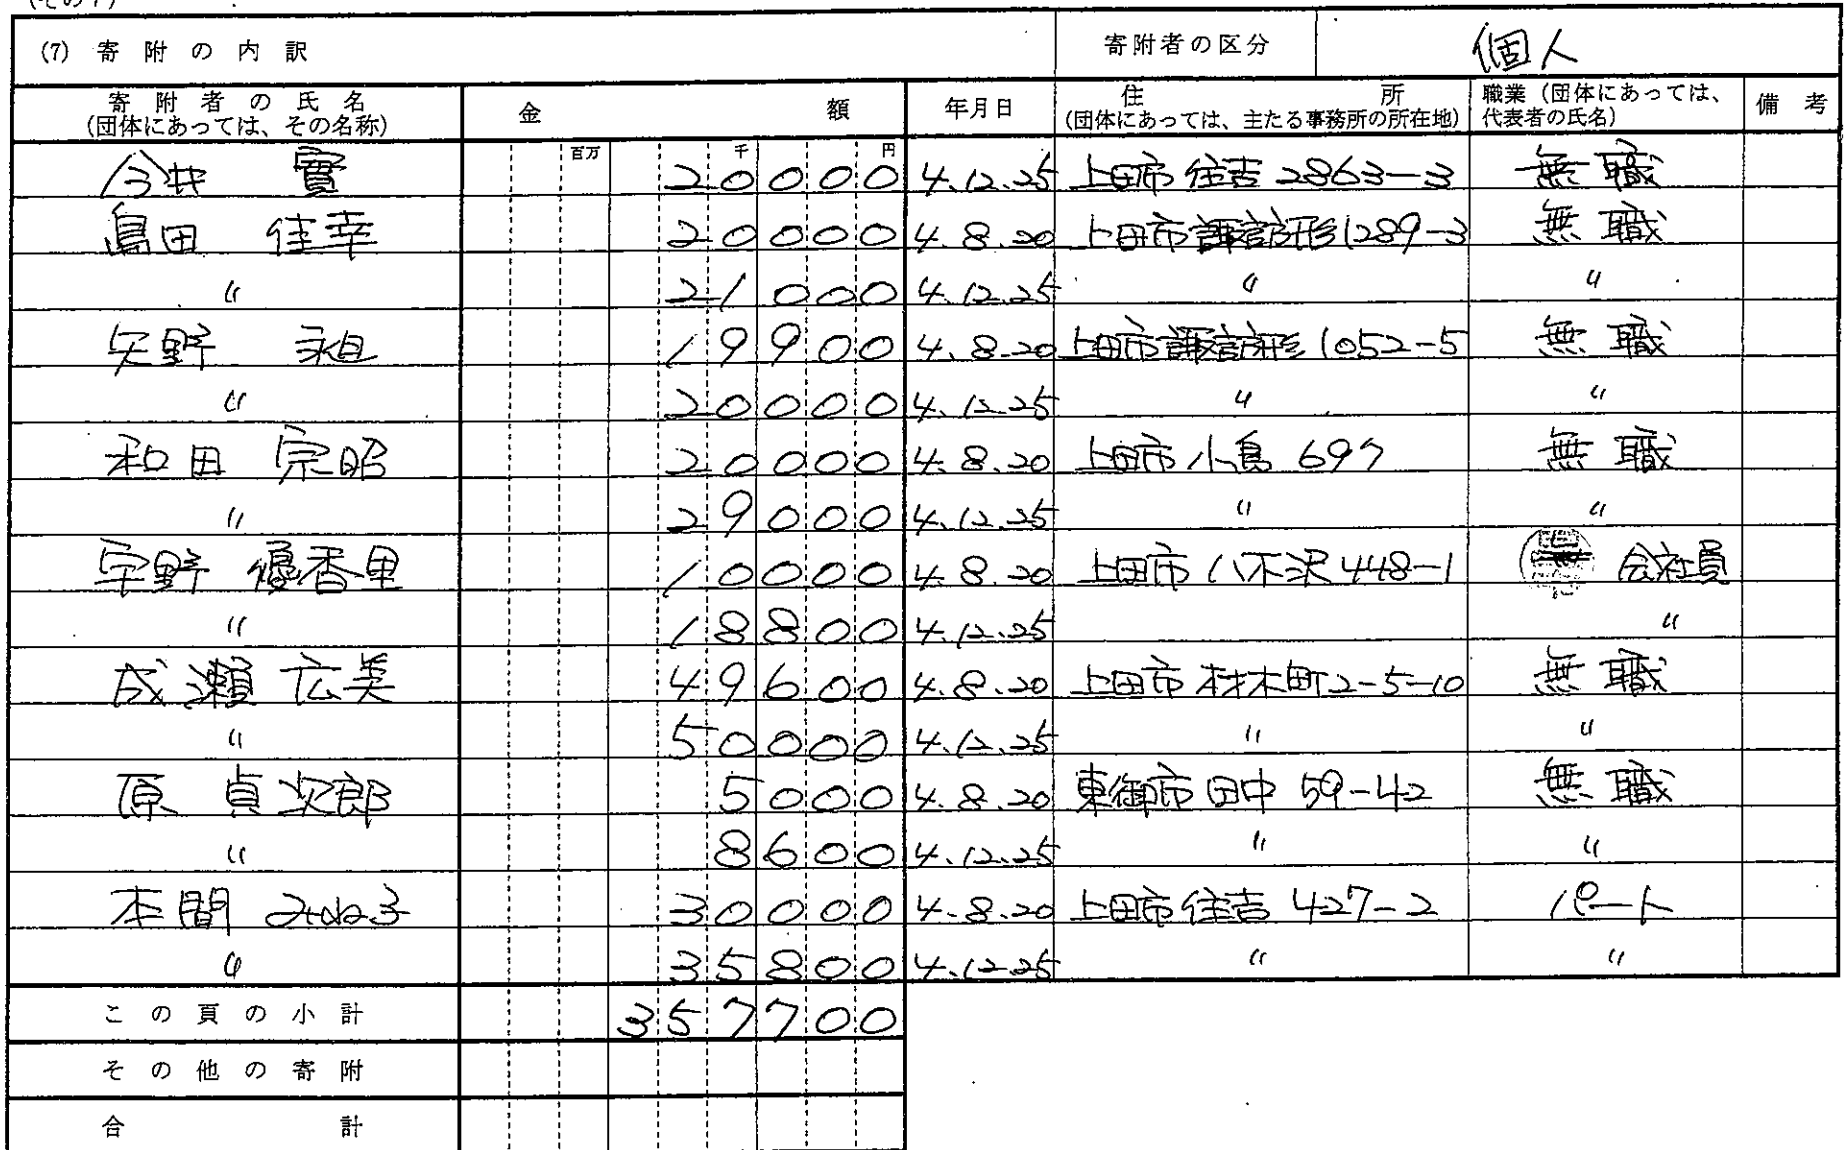 (その7)
(7) 寄附の内訳 寄附者の区分 個人
寄附者の氏名 (団体にあっては、その名称) 金額 年月日 住所 (団体にあっては、主たる事務所の所在地) 職業(団体にあっては、代表者の氏名) 備考
百万 千 円
今井 實 20000 4.12.25 上田市住吉2863-3 無職
島田 佳幸 20000 4.8.20 上田市諏訪形1289-3 無職
〃 21000 4.12.25 〃 〃
矢野 永祖 19900 4.8.20 上田市諏訪形1052-5 無職
〃 20000 4.12.25 〃 〃
和田 宗昭 20000 4.8.20 上田市小島697 無職
〃 29000 4.12.25 〃 〃
宇野 優香里 10000 4.8.20 上田市八木沢448-1 会社員
〃 18800 4.12.25 〃
成瀬 広美 49600 4.8.20 上田市材木町2-5-10 無職
〃 50000 4.12.25 〃 〃
原 貞次郎 5000 4.8.20 東御市田中59-42 無職
〃 8600 4.12.25 〃 〃
本間 30000 4.8.20 上田市住吉427-2 パート
〃 35800 4.12.25 〃 〃
この頁の小計 357700
その他の寄附
合計